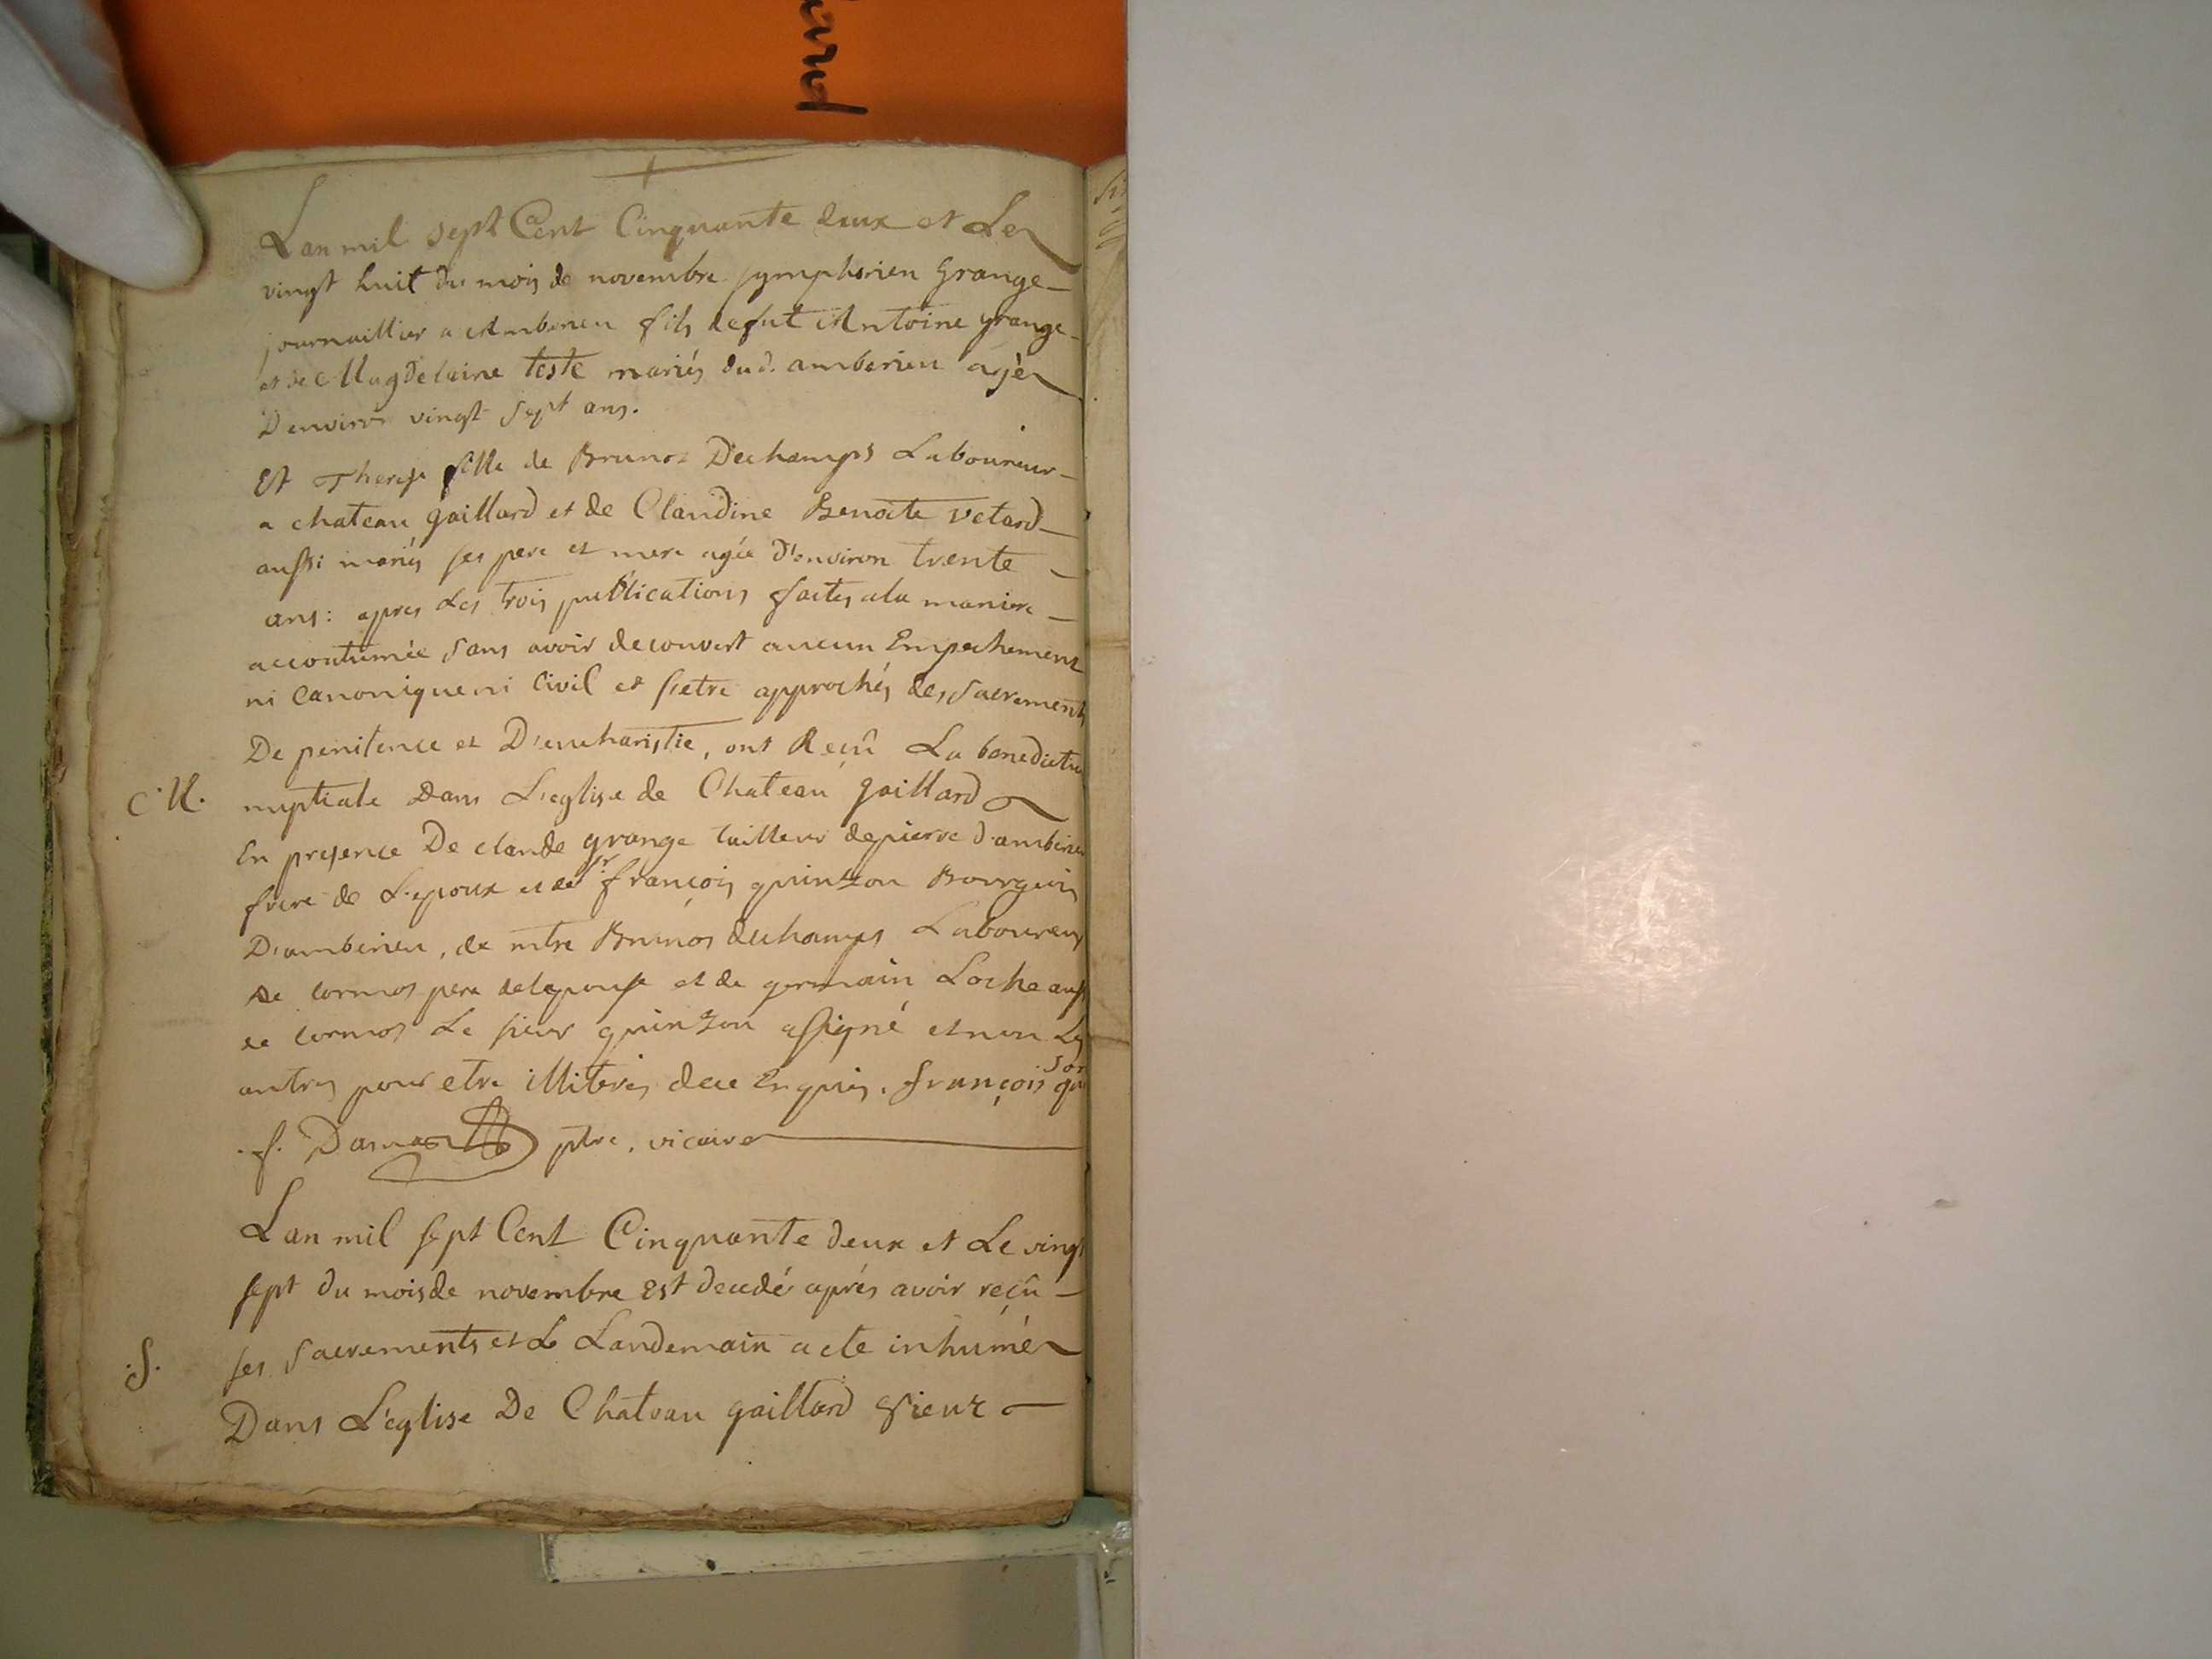 Lan mil sept Cent Cinquante deux et Le
vingt huit du mois de novembre symphorien Grange
journaillier a Amberieu fils defut Antoine grange
et de Magdelaine teste mariés dud. amberieu agè
D'environ vingt sept ans.
Et Therese fille de Brunoz Dechamps Laboureur
a chateau gaillard et de Claudine Benoite vetard
aussi mariés ses pere et mere agée d'environ trente
ans: apres Les trois publications faites ala maniere
accoutumée sans avoir decouvert aucun Empechement
ni Canonique ni Civil et s'etre approchés des sacrements
De penitence et D'eucharistie, ont Reçû La benedictio
M. nuptiale Dans L'eglise de Chateau gaillard
En presence De claude grange tailleur depierre d'amberieu
frere de L'epoux et de sr françois guinzon Bourgeois
D'amberieu, de mtre Brunos dechamps Laboureur
de cormos pere delepouse et de germain Loche aussi
de cormos Le sieur guinzon asigné et non Les
autres pour etre illiterés dece Enquis. françois
f. ptre. vicaire
Lan mil sept Cent Cinquante deux et Le vingt
sept du mois de novembre Est decedé aprés avoir reçû
S. ses sacrements et Le Landemain a ete inhumé
Dans L'eglise De Chateau gaillard